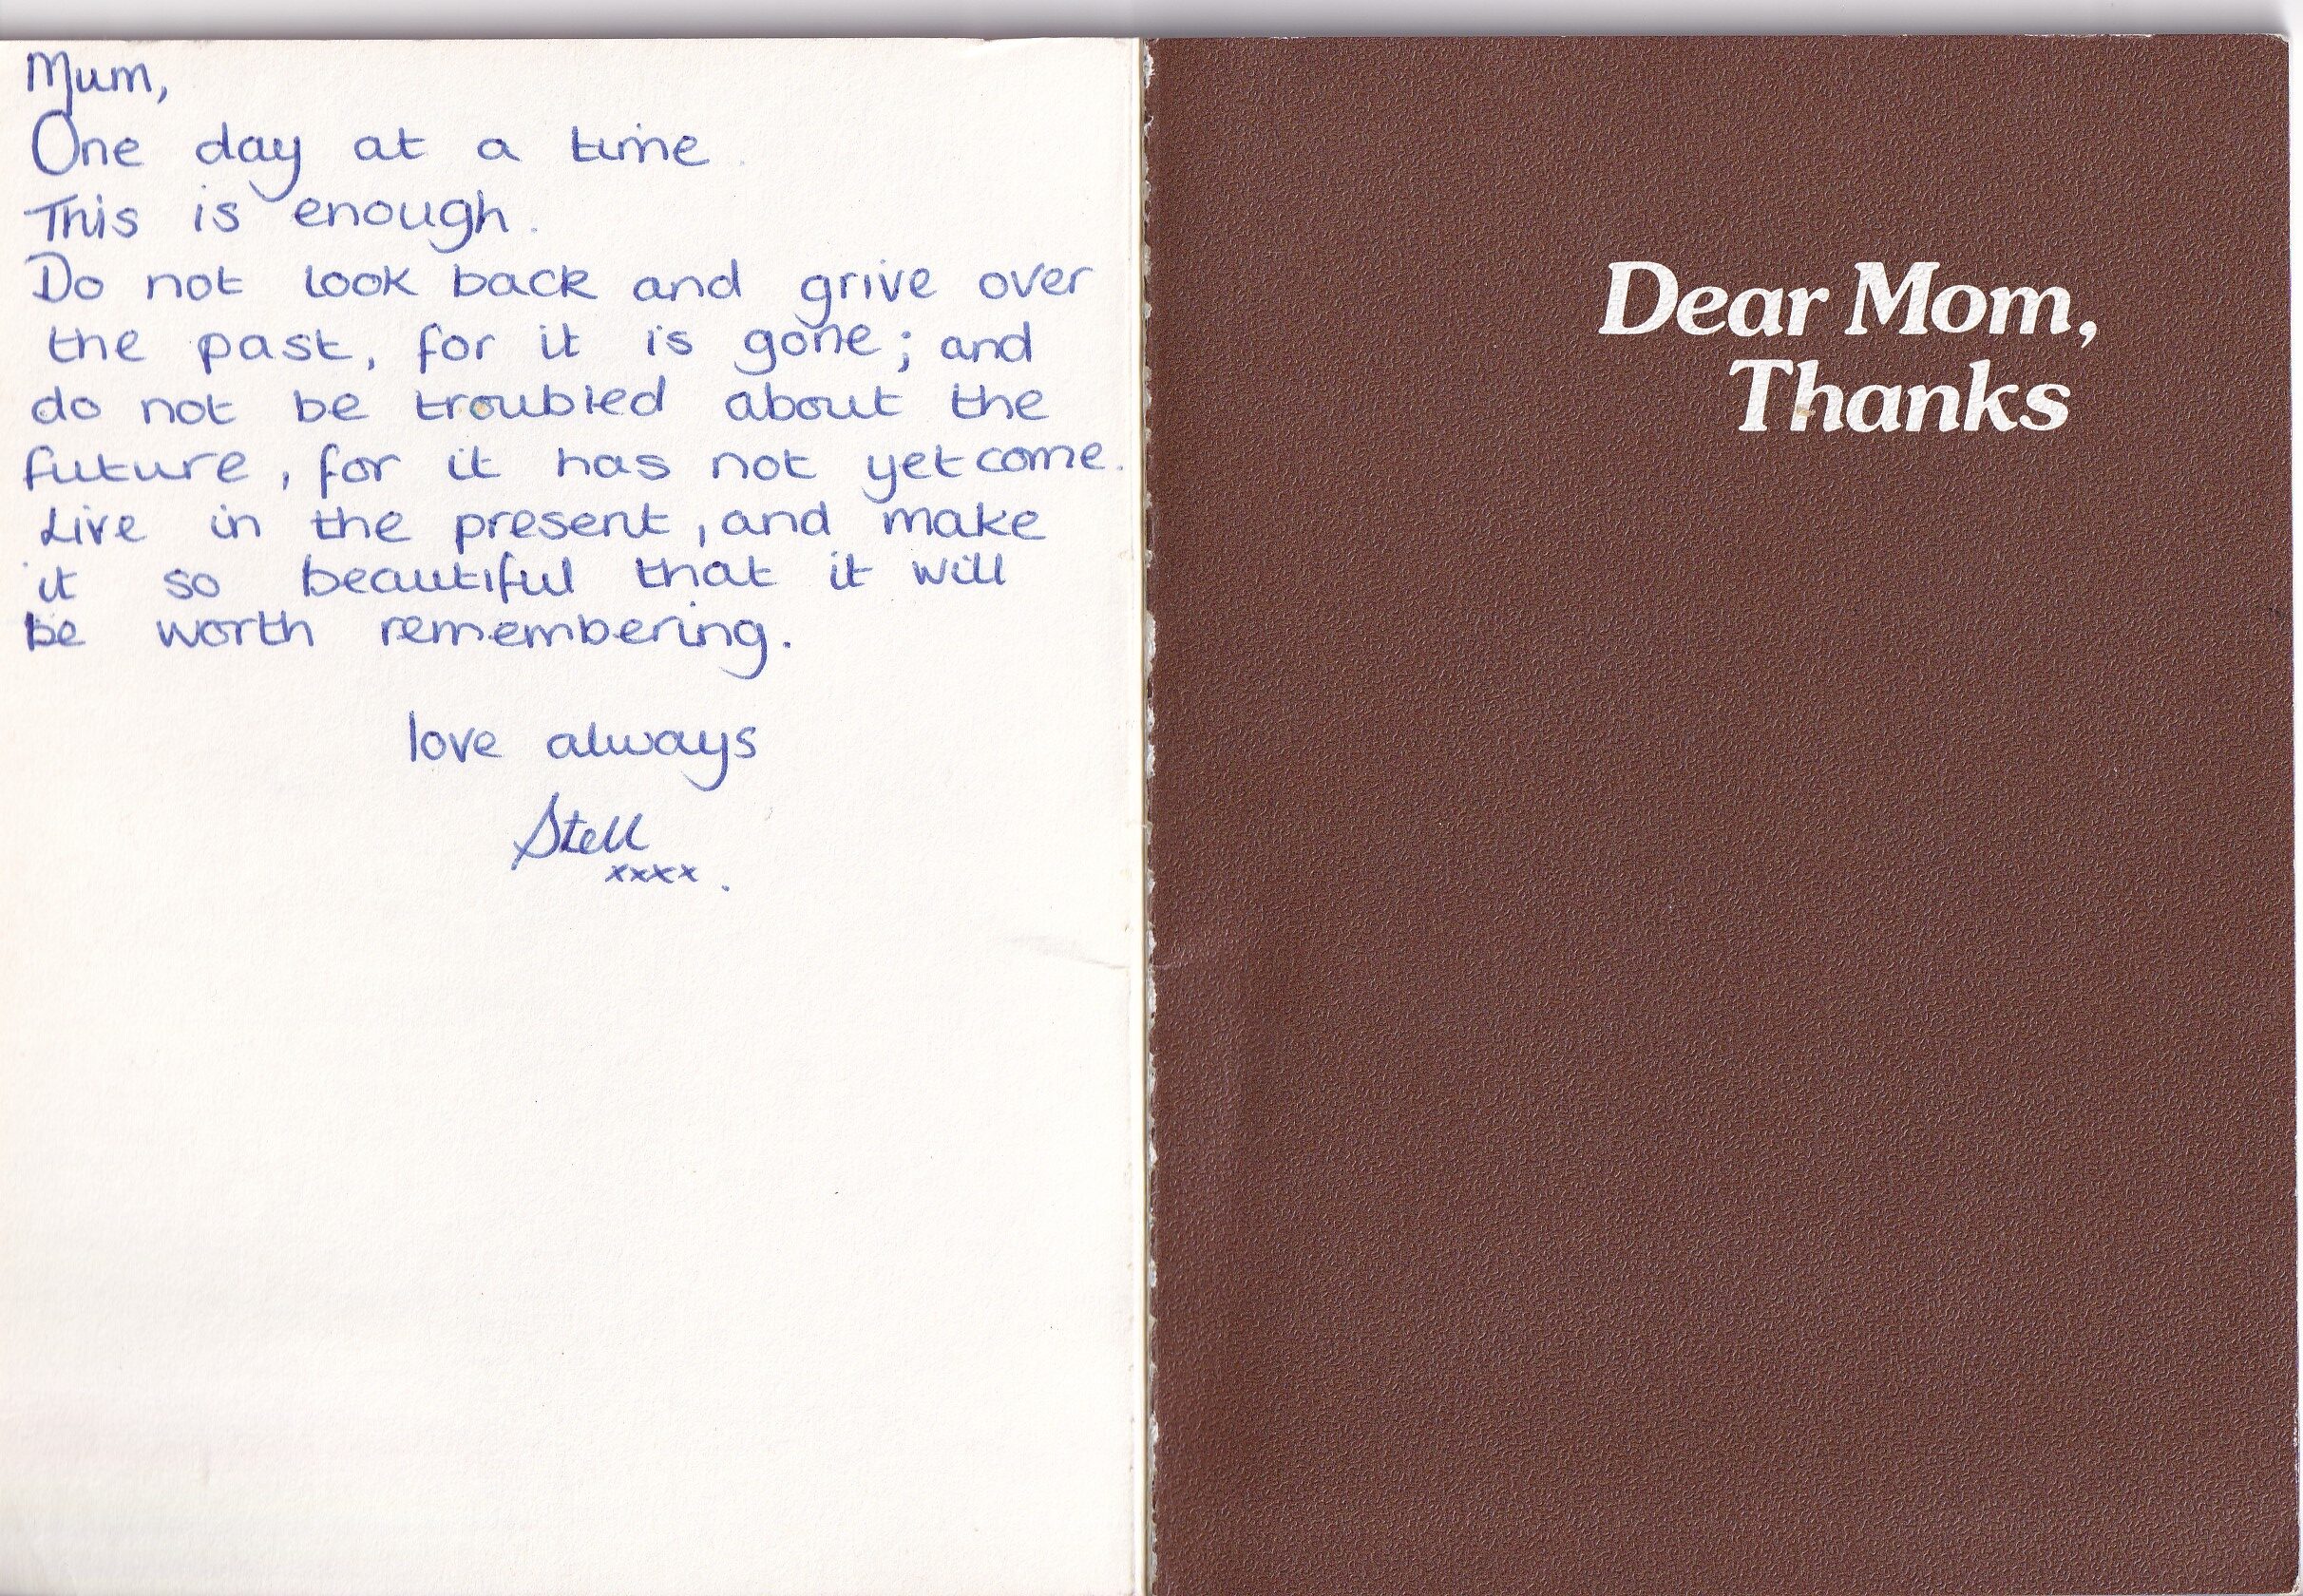 Mum,
One day at a time.
This is enough.
Do not look back and grive over
the past, for it is gone; and
do not be troubled about the
future, for it has not yet come.
Live in the present, and make
it so beautiful that it will
be worth remembering.
love always
Stell
xxxx.
Dear Mom,
Thanks